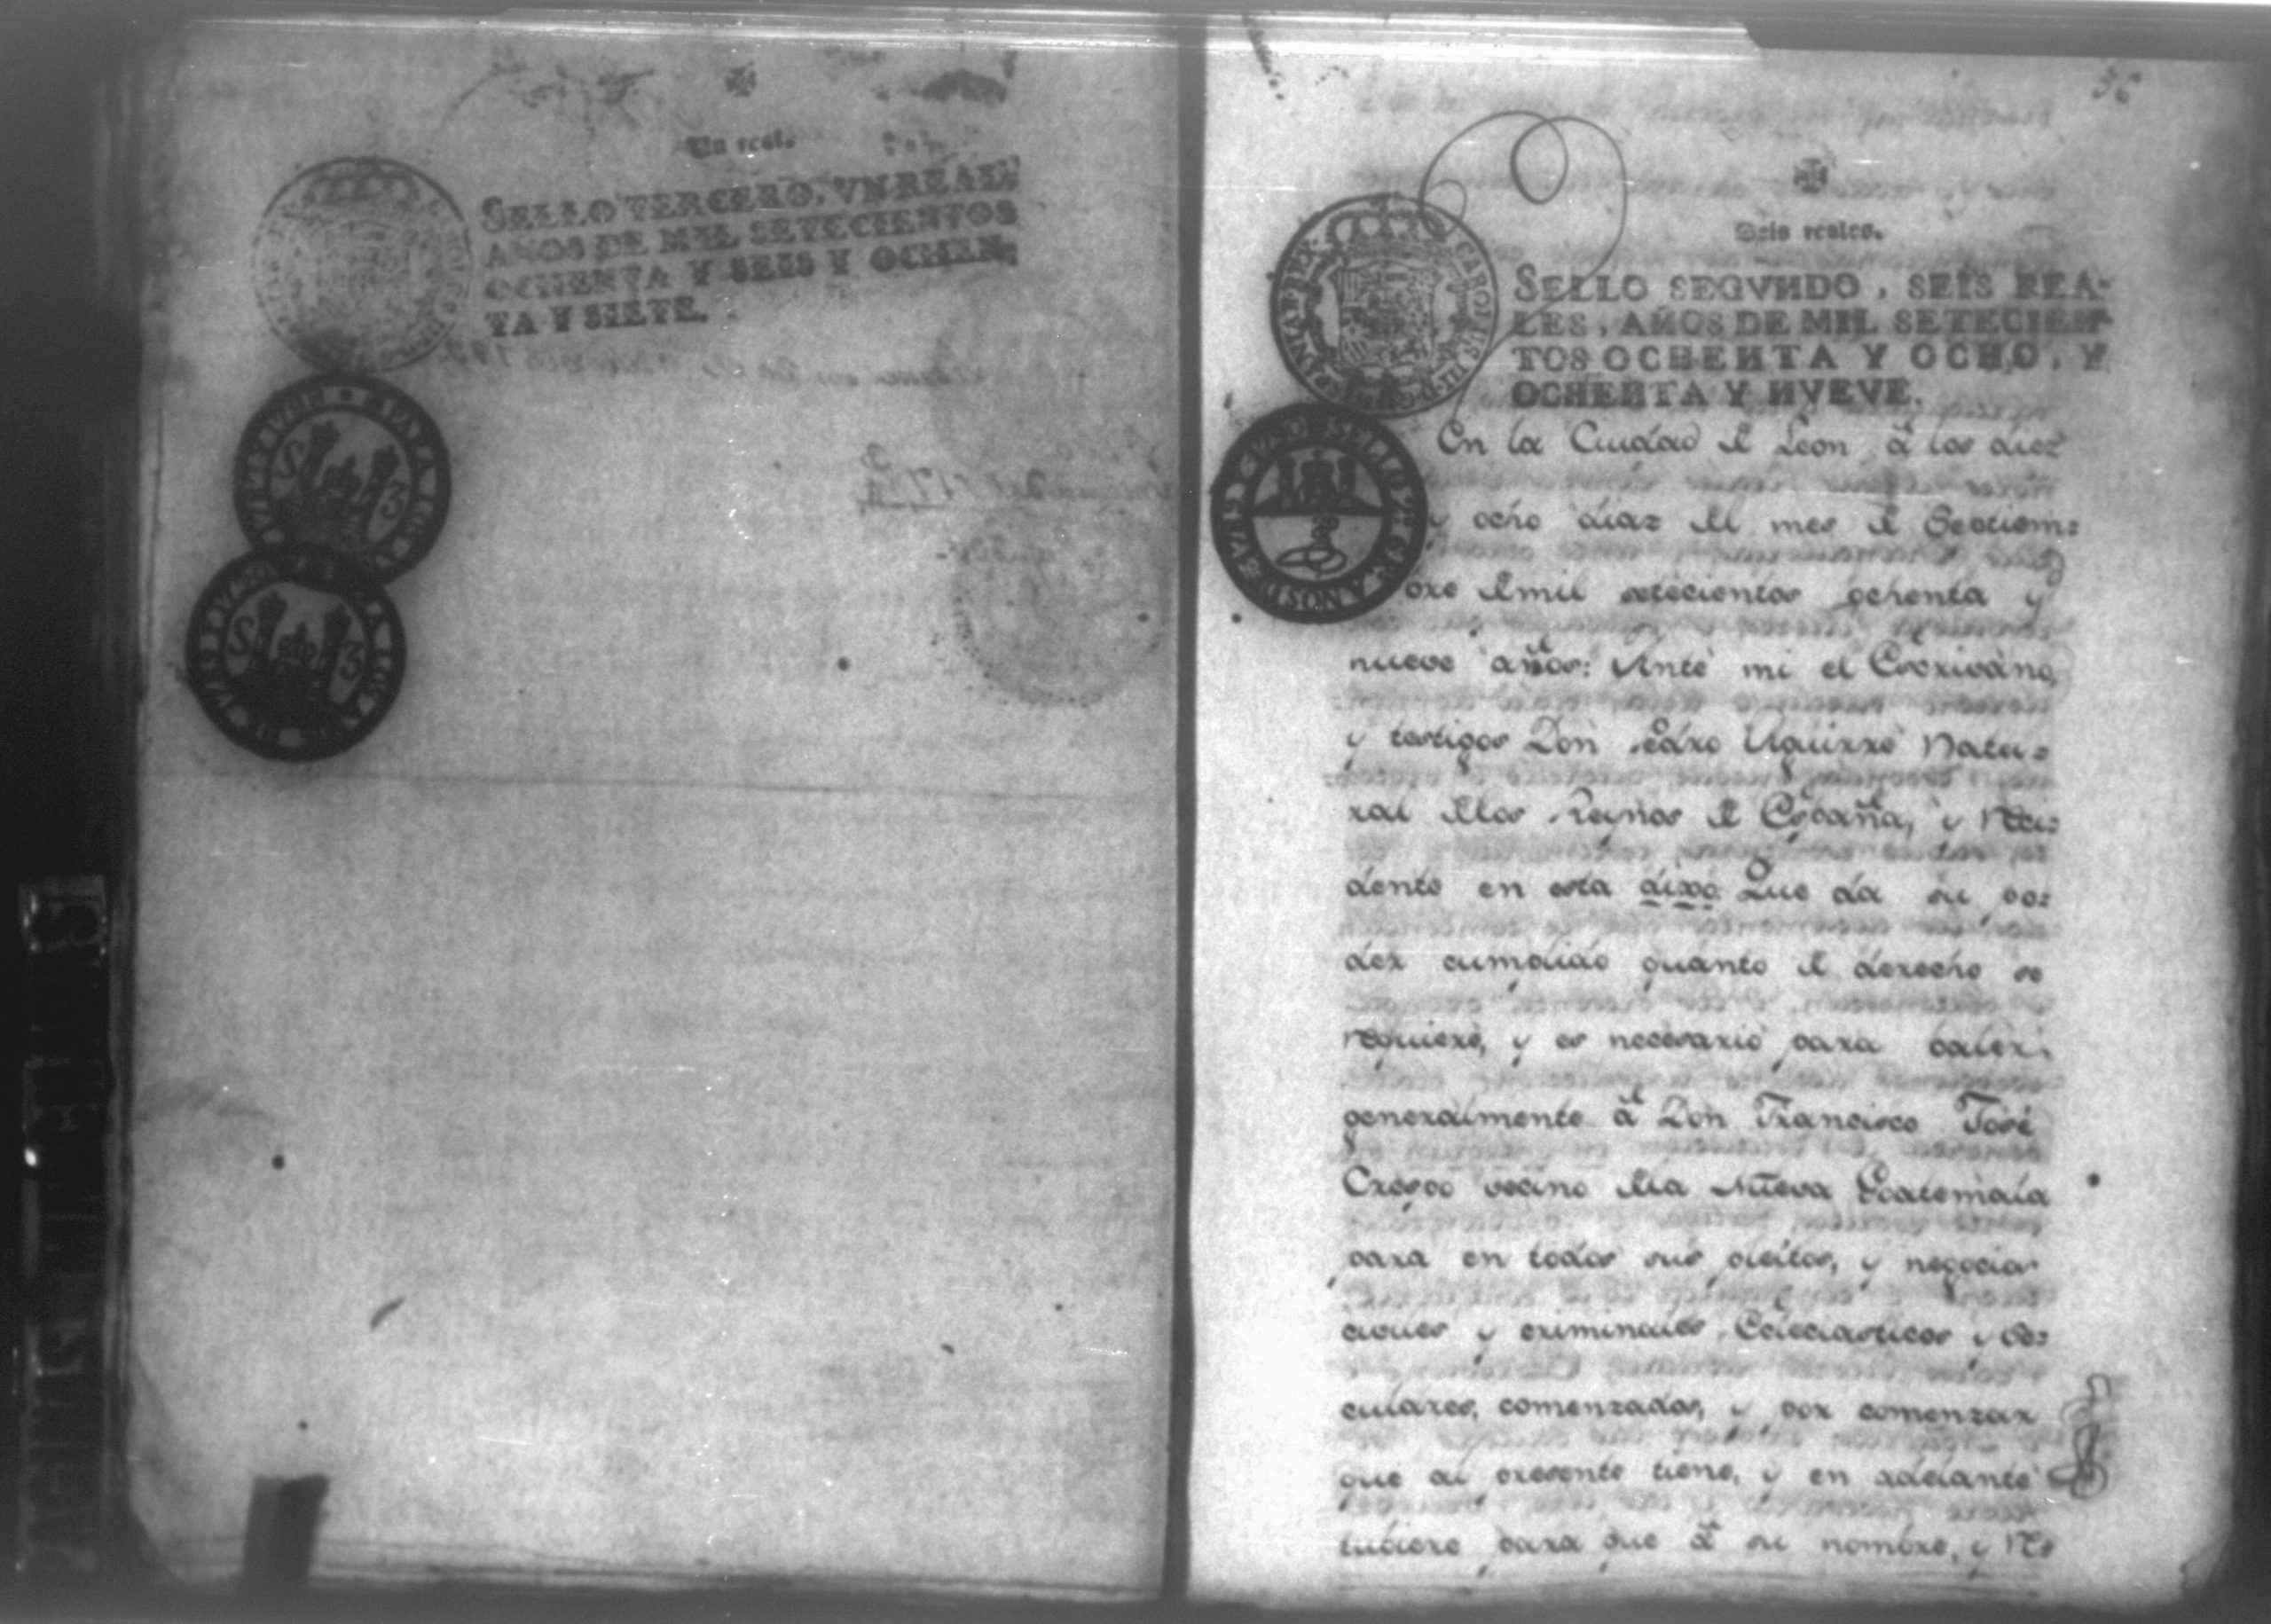 Un real.
SELLO TERCERO, VN REAL,
AÑOS DE MIL SETECIENTOS
OCHENTA Y SEIS Y OCHEN-
TA Y SIETE.
36
Seis reales.
SELLO SEGVNDO, SEIS REA-
LES, AÑOS DE MIL SETECIEN-
TOS OCHENTA Y OCHO, Y
OCHENTA Y NVEVE.
En la Ciudad de Leon á los diez
y ocho dias del mes de Septiem=
bre de mil setecientos ochenta y
nueve años: Ante mi el Escrivano,
y testigos Don Pedro Aguirre Natu=
ral de los Reynos de España, y Resi=
dente en esta dixo: Que da su po=
der cumplido quanto de derecho se
requiere, y es necesario para valer
generalmente á Don Francisco José
Crespo vecino de la Nueva Goatemala
para en todos sus pleitos, y negocios
civiles y criminales, Eclesiasticos y Se=
culares, comenzados, y por comenzar
que al presente tiene, y en adelante
tubiere para que á su nombre, y Re